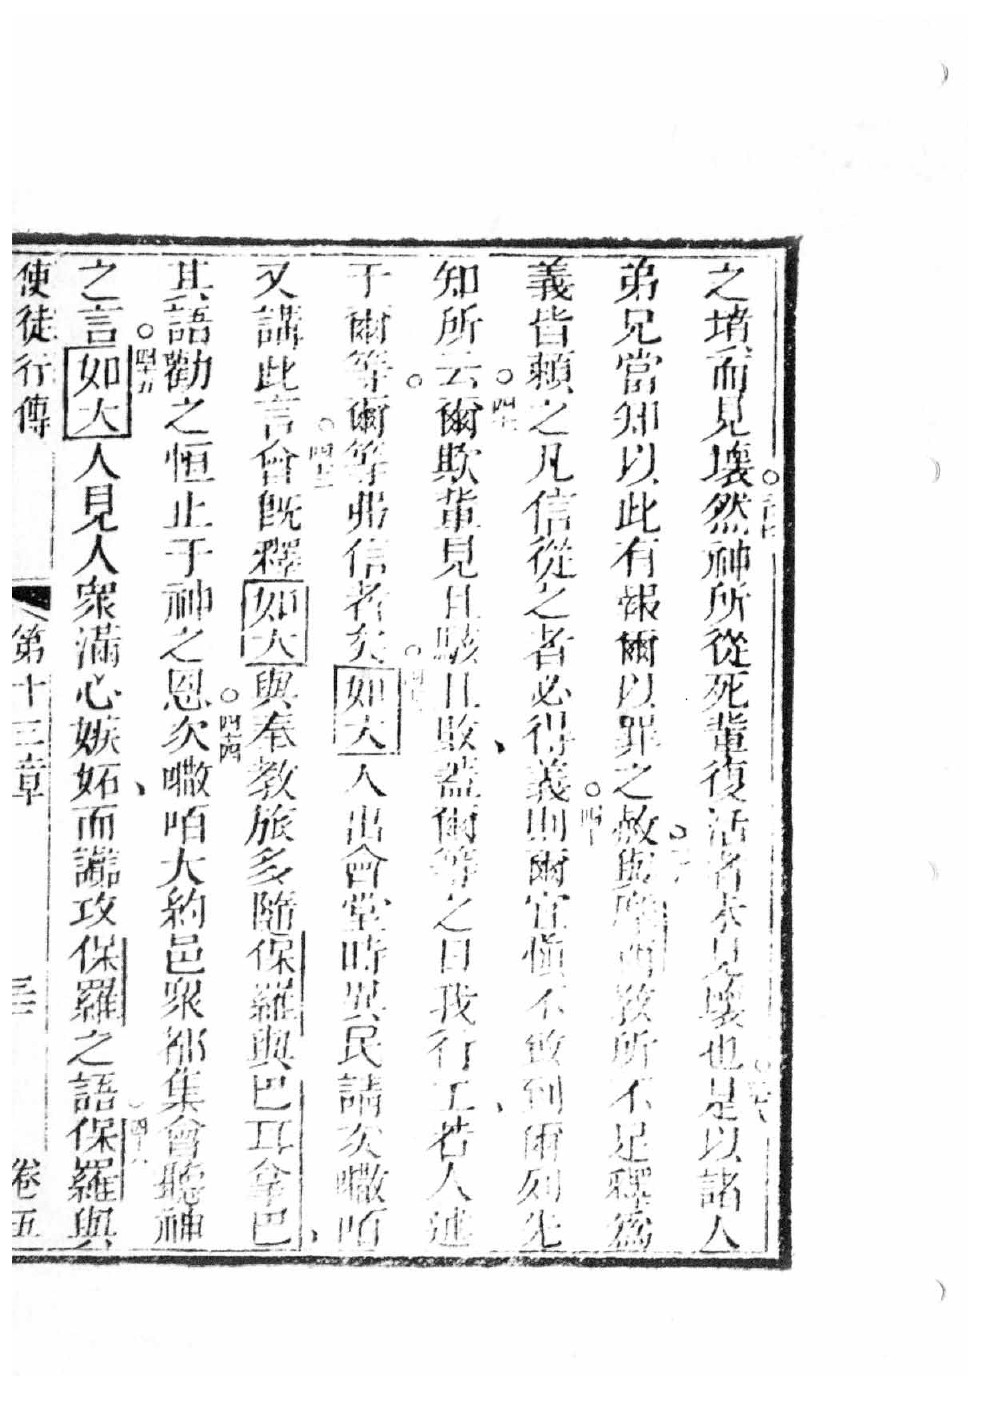 之墳而見壞然神所從死輩復活者未見壞也是以諸人
弟兄當知以此有報爾以罪之赦與摩西務所不足釋爲
義皆賴之凡信從之者必得義則爾宜愼不致到爾列先
知所云爾欺輩見且駭且敗蓋爾等之日我行工若人述
于爾等爾等弗信者矣如大人出會堂時異民請次嗽咟
又講此言會旣釋如大與奉教旅多隨保羅與巴耳拿巴
其語勸之恒止于神之恩次嗽咟大約邑衆都集會聽神
之言如大人見人衆滿心嫉妬而讒攻保羅之語保羅與
使徒行傳 第十三章 卷五